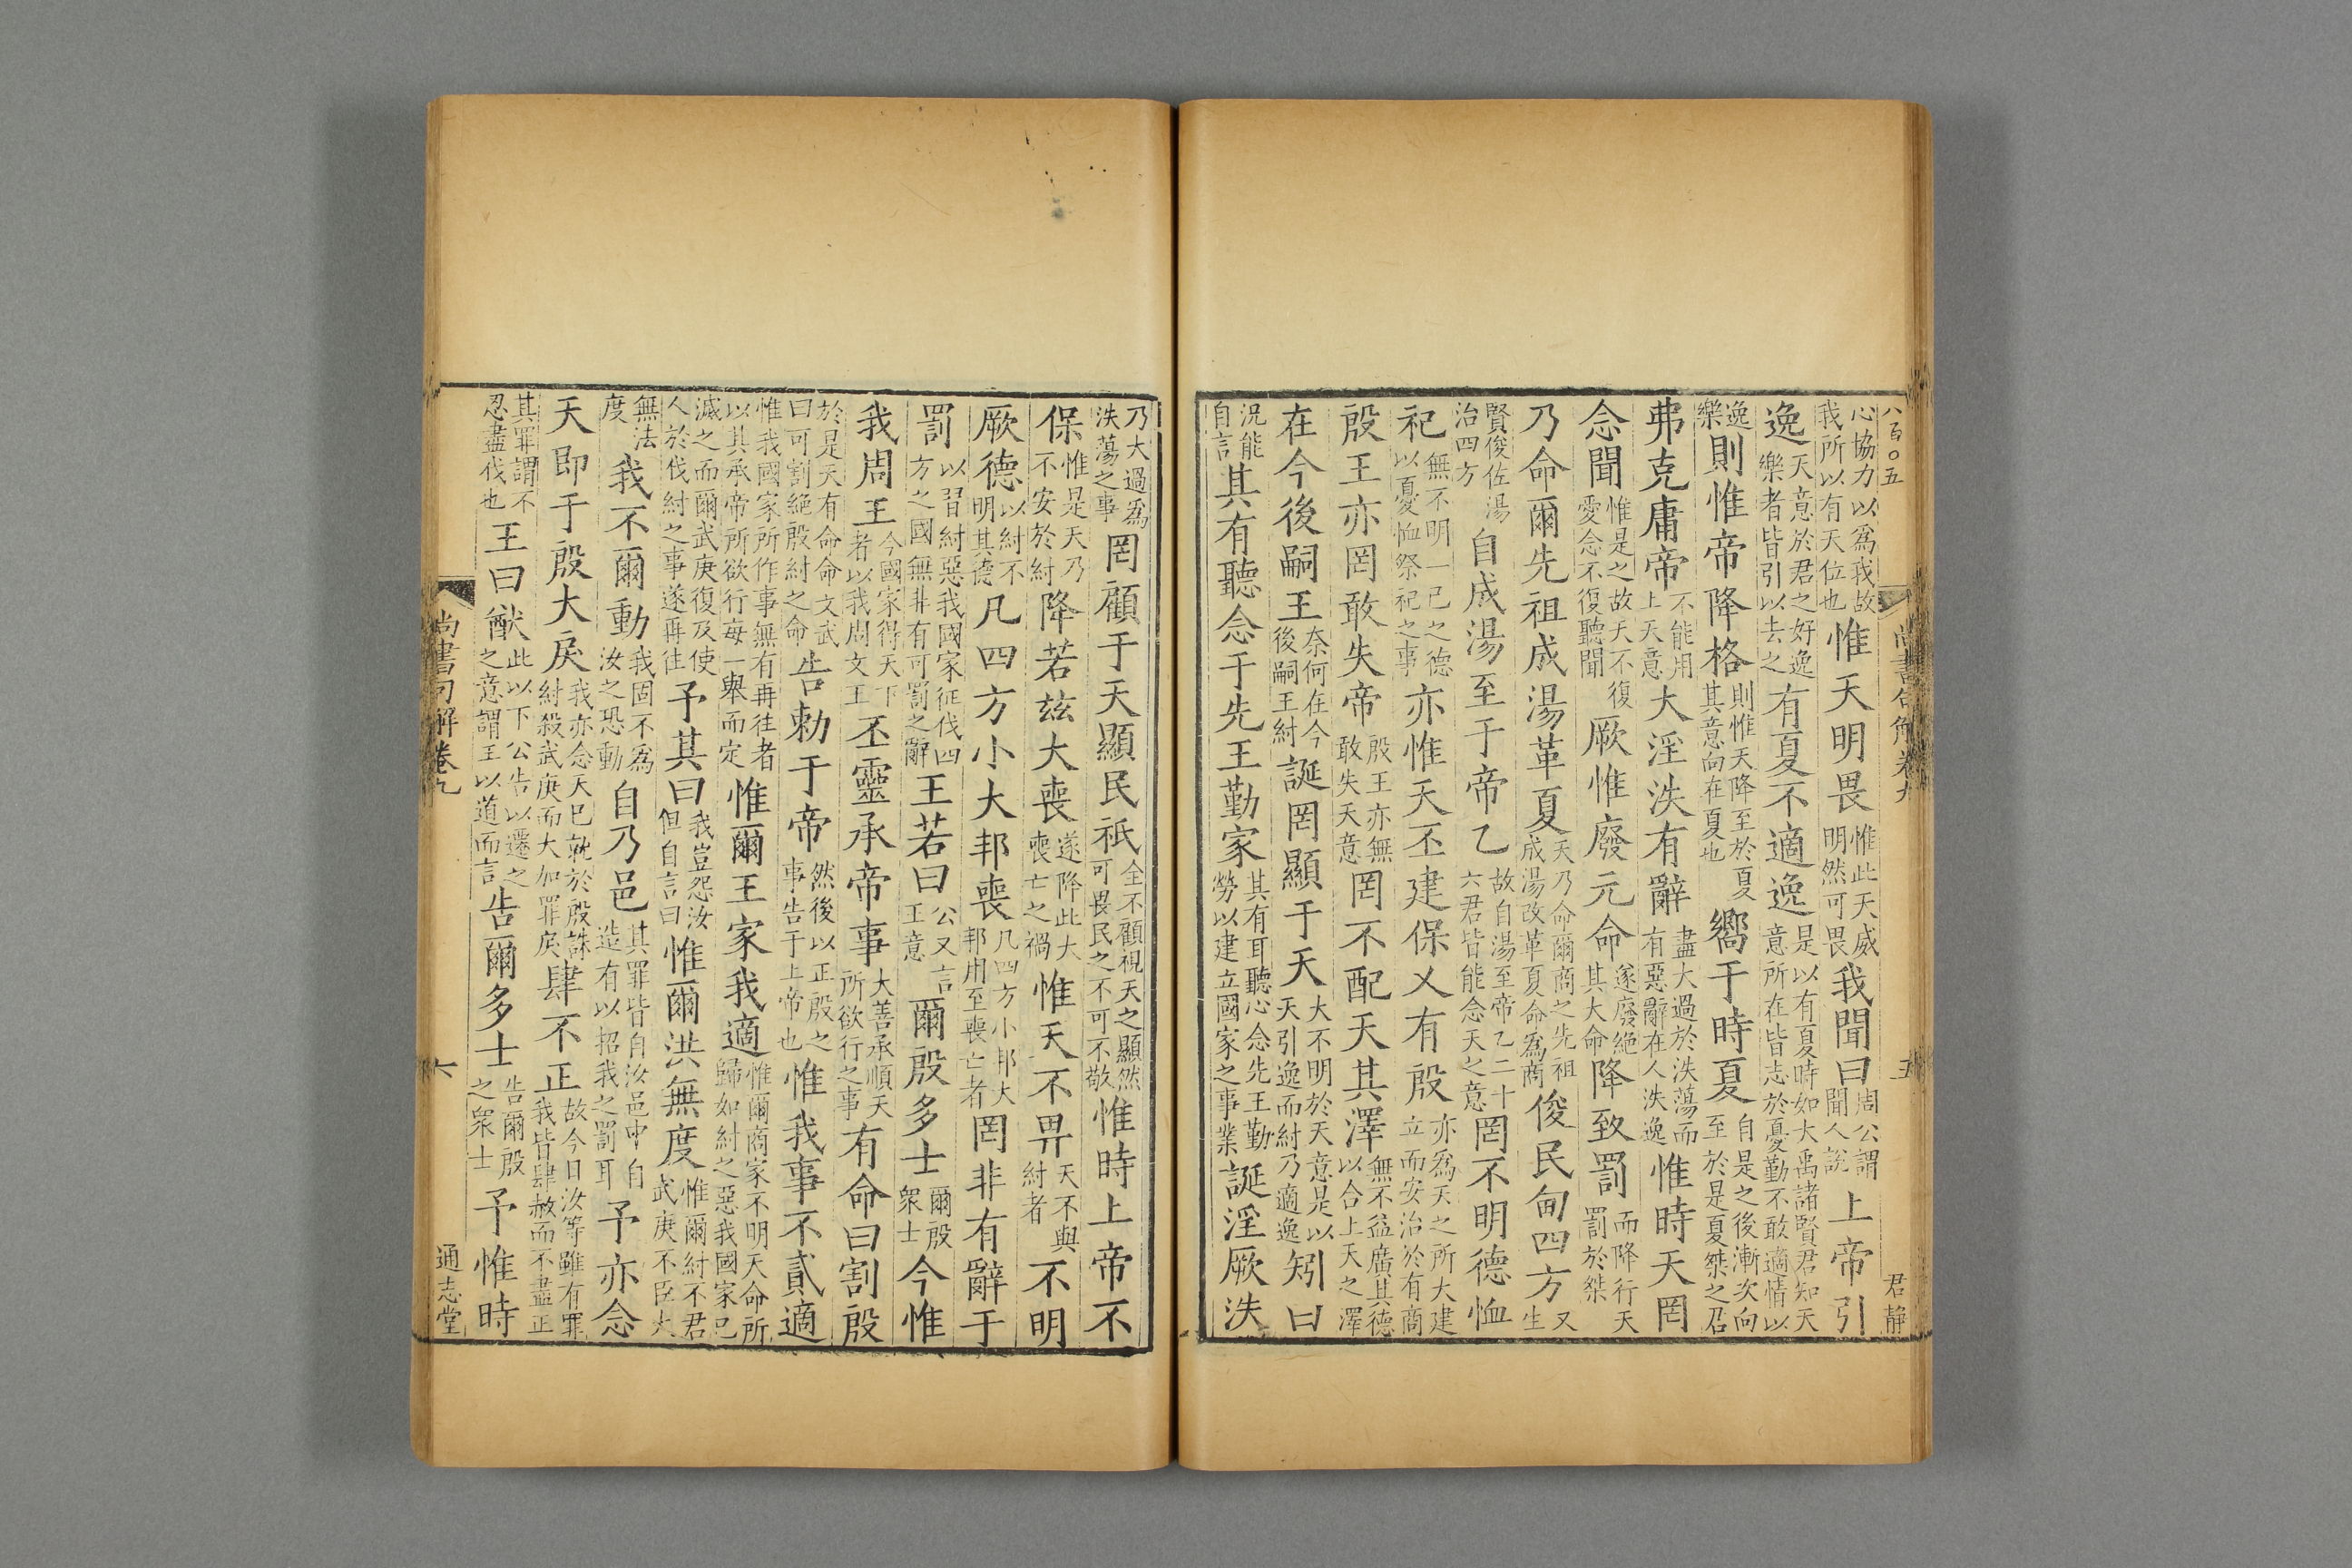 八百〇五
尚書句解卷九
五
君靜
心協力以爲我故我所以有天位也惟天明畏惟此天威明然可畏我聞曰周公謂聞人說上帝引
逸天意於君之好逸樂者皆引以去之有夏不適逸是以有夏時如大禹諸賢君知天意所在皆志於憂勤不敢適情以
逸樂則惟帝降格則惟天降至於夏其意向在夏也嚮于時夏自是之後漸次向至於是夏桀之君
弗克庸帝不能用上天意大淫泆有辭盡大過於泆蕩而有惡辭在人泆逸惟時天罔
念聞惟是之故天不復愛念不復聽聞厥惟廢元命遂廢絕其大命降致罰而降行天罰於桀
乃命爾先祖成湯革夏天乃命爾商之先祖成湯改革夏命爲商俊民甸四方又生
賢俊佐湯治四方自成湯至于帝乙故自湯至帝乙二十六君皆能念天之意罔不明德恤
祀無不明一己之德以憂恤祭祀之事亦惟天丕建保乂有殷亦爲天之所大建立而安治於有商
殷王亦罔敢失帝殷王亦無敢失天意罔不配天其澤無不益廣其德以合上天之澤
在今後嗣王奈何在今後嗣王紂誕罔顯于天大不明於天意是以天引逸而紂乃適逸矧曰
況能自言其有聽念于先王勤家其有耳聽心念先王勤勞以建立國家之事業誕淫厥泆
乃大過爲泆蕩之事罔顧于天顯民祇全不顧視天之顯然可畏民之不可不敬惟時上帝不
保惟是天乃不安於紂降若茲大喪遂降此大喪亡之禍惟天不畀天不與紂者不明
厥德以紂不明其德凡四方小大邦喪凡四方小邦大邦用至喪亡者罔非有辭于
罰以習紂惡我國家征伐四方之國無非有可罰之辭王若曰公又言王意爾殷多士爾殷衆士今惟
我周王今國家得天下者以我周文王丕靈承帝事大善承順天所欲行之事有命曰割殷
於是天有命命文武曰可割絕殷紂之命告勑于帝然後以正殷之事告于上帝也惟我事不貳適
惟我國家所作事無有再往者以其承帝所欲行每一舉而定惟爾王家我適惟爾商家不明天命所歸如紂之惡我國家已
滅之而爾武庚復及使人於伐紂之事遂再往予其曰我豈怨汝但自言曰惟爾洪無度惟爾紂不君武庚不臣大
無法度我不爾動我固不爲汝之恐動自乃邑其罪皆自汝邑中自造有以招我之罰耳予亦念
天即于殷大戾我亦念天已就於殷誅紂殺武庚而大加罪戾肆不正故今日汝等雖有罪我皆肆赦而不盡正
其罪謂不忍盡伐也王曰猷此以下公告以遷之之意謂王以道而言告爾多士告爾殷之衆士予惟時
尚書句解卷九
六
通志堂